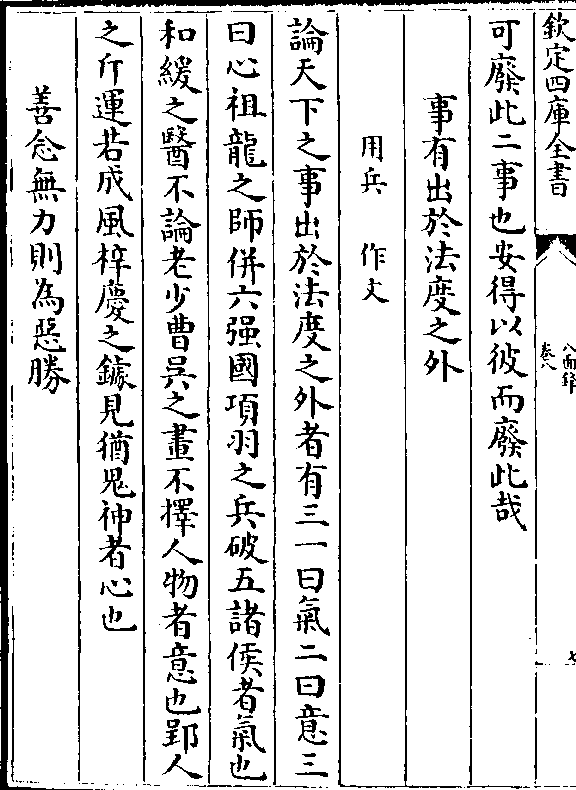 欽定四庫全書
八面鋒
卷八
七
可廢此二事也安得以彼而廢此哉
事有出於法度之外
用兵 作文
論天下之事出於法度之外者有三一曰氣二曰意三
曰心祖龍之師併六强國項羽之兵破五諸侯者氣也
和緩之醫不論老少曹吳之畫不擇人物者意也郢人
之斤運若成風梓慶之鐻見猶鬼神者心也
善念無力則為惡勝